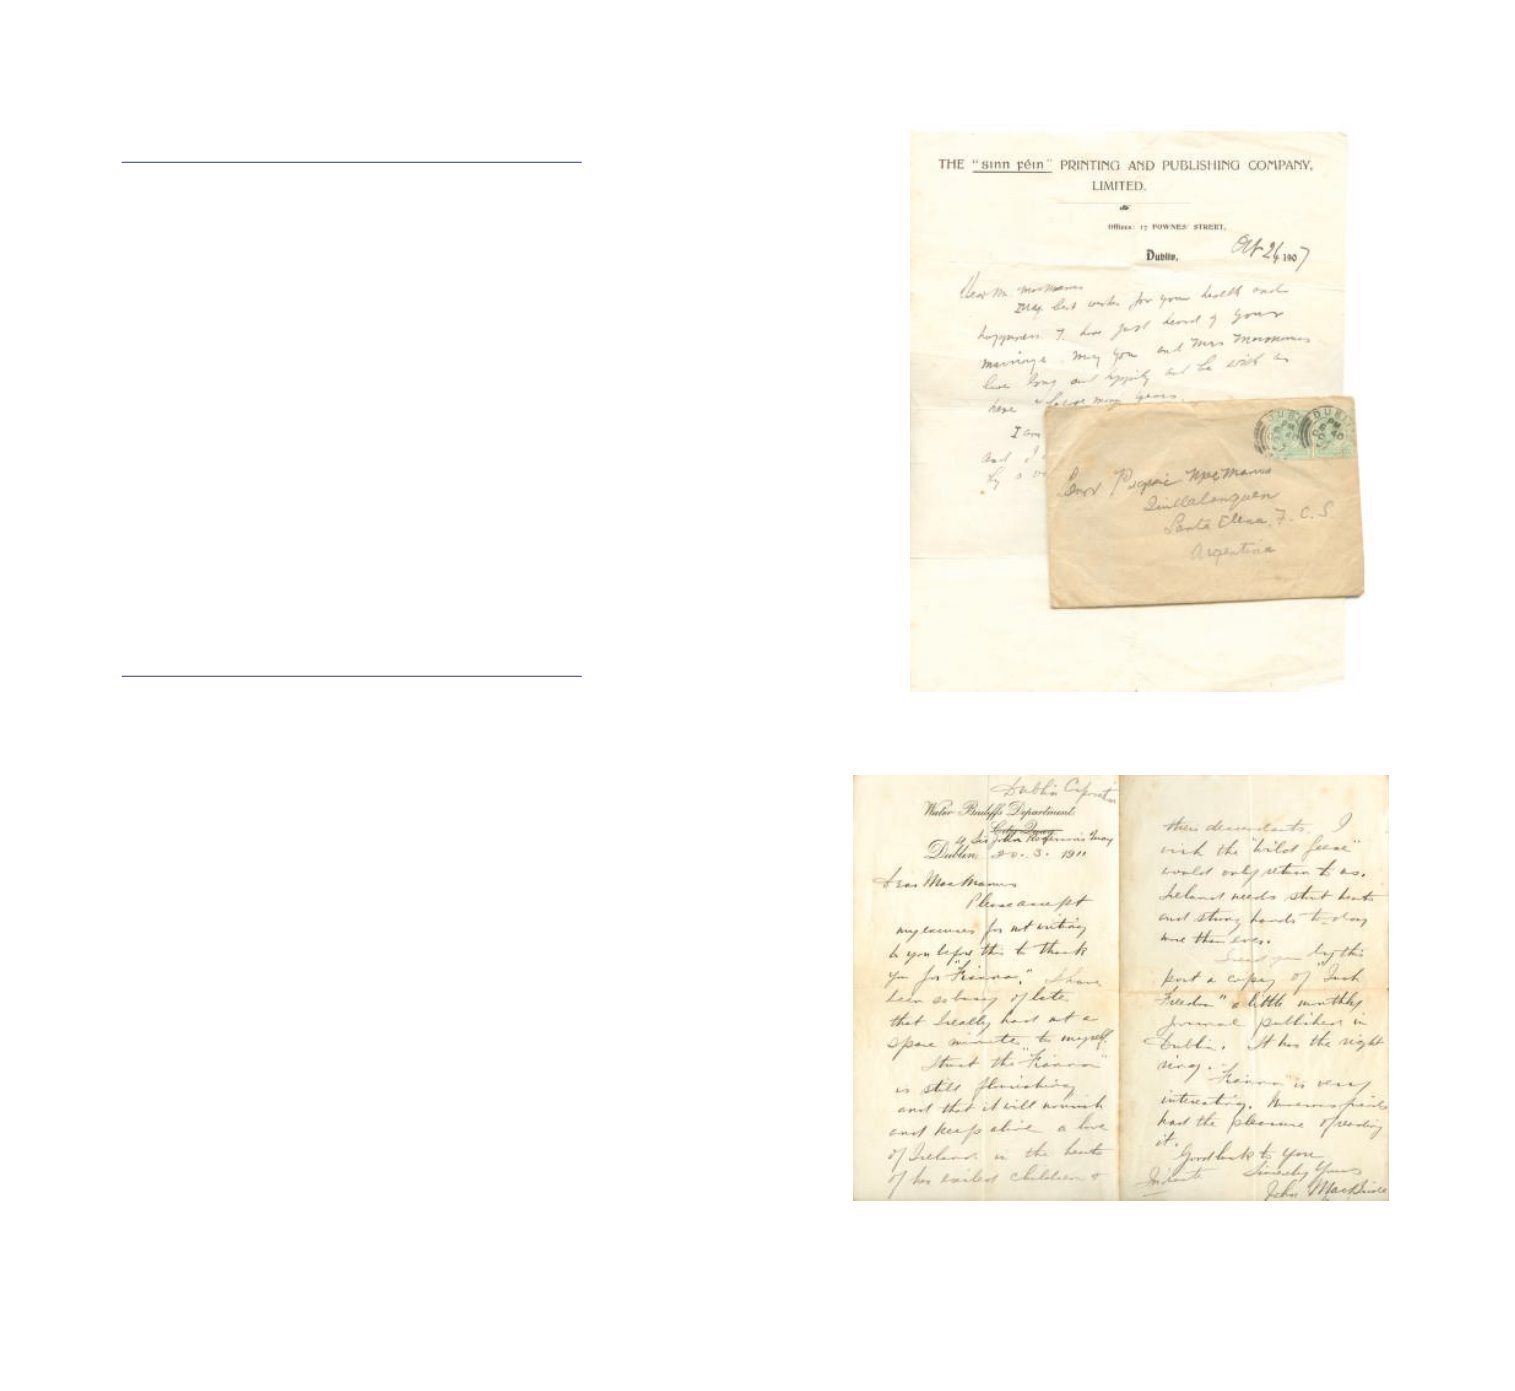 THE "sinn féin" PRINTING AND PUBLISHING COMPANY,
LIMITED.
Offices: 17 FOWNES' STREET,
Dublin, Oct 26 1907
Dear Mr MacManus
best wishes for your health and
happiness. I have just heard of your
marriage. May you and Mrs MacManus
live long and happily and be with us
here before many years.
I am
and I
by a
DUBLIN
DUBLIN
Señor MacManus
Santa Elena, F. C. S
Argentina
Dublin Corporation
Water Bailiff's Department
City Quay
4, Sir John Rogerson's Quay
Dublin, 20. 3. 1911
Dear MacManus
Please accept
my excuses for not writing
to you before this to thank
you for "Fianna." I have
been so busy of late
that I really had not a
spare minute to myself.
I trust the "Fianna"
is still flourishing
and that it will nourish
and keep alive a love
of Ireland in the hearts
of her exiled children &
their descendants. I
wish the "Wild Geese"
would only return to us.
Ireland needs stout hearts
and strong hands to-day
more than ever.
I send you by this
post a copy of "Irish
Freedom" a little monthly
journal published in
Dublin. It has the right
ring.
"Fianna" is very
interesting. Numerous friends
had the pleasure of reading
it.
Good luck to you
Sincerely Yours
John MacBride